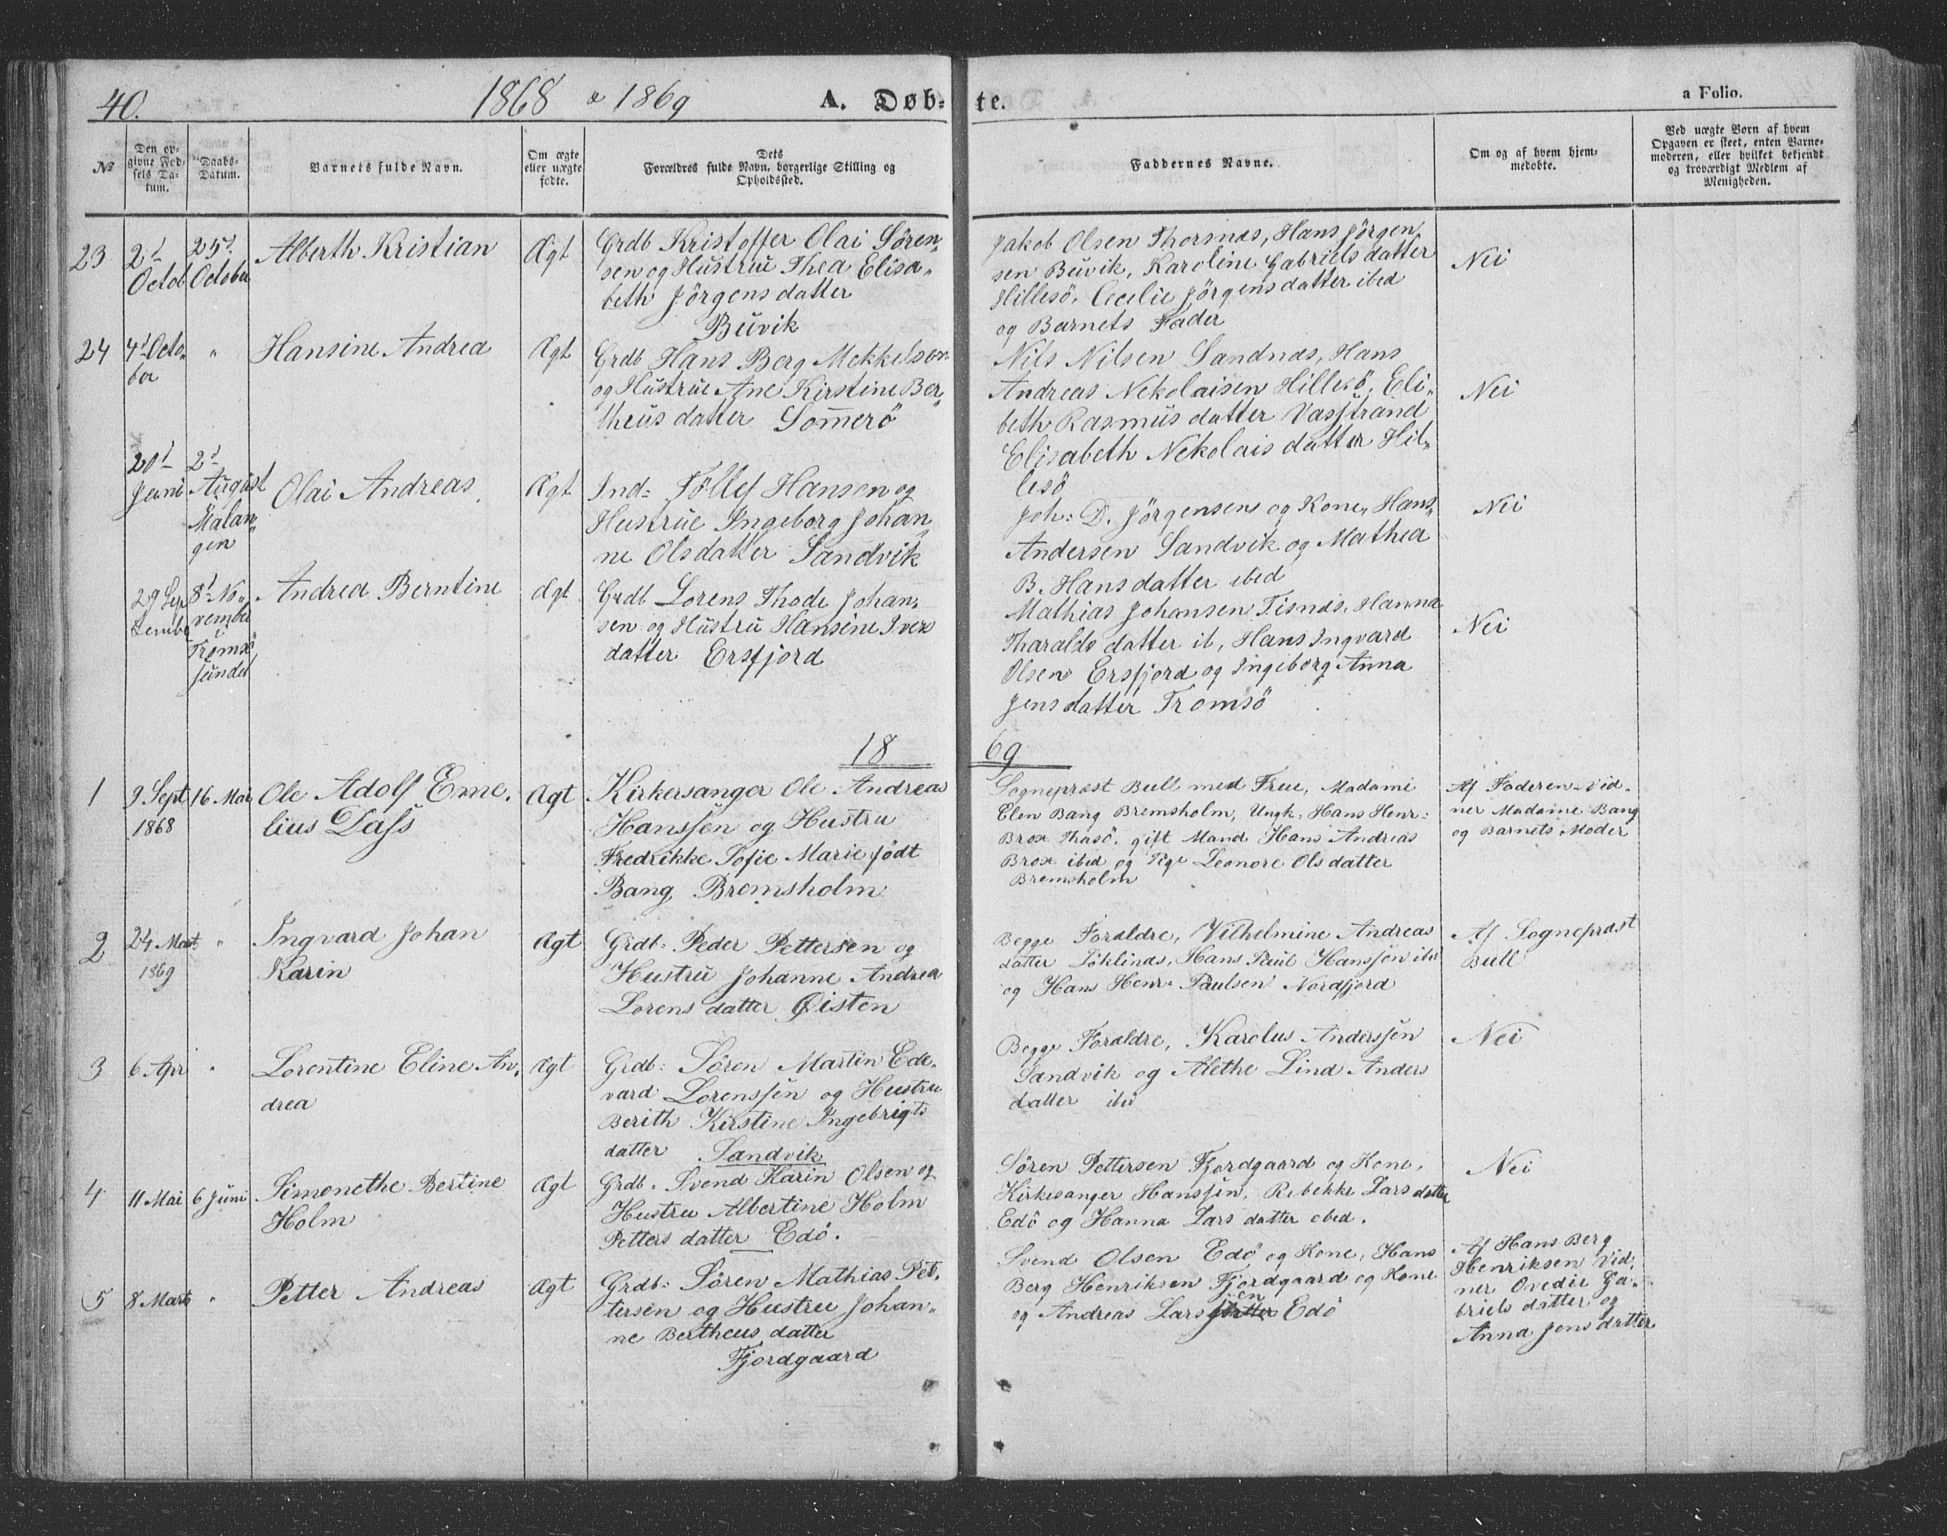 40.
1868 & 1869
A. Døb-
te.
a Folio.
№
Den op-
givne Fød-
sels Da-
tum.
Daabs-
Datum.
Barnets fulde Navn.
Om ægte
eller uægte
fødte.
Dets
Forældres fulde Navn, borgerlige Stilling og
Opholdssted.
Faddernes Navne.
Om og af hvem hjem-
medøbte.
Ved uægte Born af hvem
Opgaven er skeet, enten Barne-
moderen, eller hvilket bekjendt
og troværdigt Medlem af
Menigheden.
23
2d
Octob
25d
October
Alberth Kristian
Ægt
Grdb Kristoffer Olai Sören-
sen og Hustrue Thea Elisa-
beth Jörgensdatter
Buvik
Jakob Olsen Thorsnæs, Hans Jörgen-
sen Buvik, Karoline Gabrielsdatter
Hillesö, Cecelie Jörgensdatter ibed
og Barnets Fader
Nei
24
4d Octo-
ber
"
Hansine Andrea
Ægt
Grdb Hans Berg Mekkelsen
og Hustrue Ane Kirstine Ber-
theusdatter Sommerö
Nils Nilsen Sandnæs, Hans
Andreas Nekolaisen Hillesö, Eli-
beth Rasmusdatter Vasstrand
Elisabeth Nekolaisdatter Hil-
lesö
Nei
20d
Juni
2d
August
Malan-
gen
Olai Andreas
Ægt
Ind: Töllef Hansen og
Hustrue Ingeborg Johan-
ne Olsdatter Sandvik
Joh: D. Jörgensens og Kone, Hans
Andersen Sandvik og Mathea
B. Hansdatter ibed
Nei
29 Sep
tembr
8d No-
vember
i
Tromsö
sundet
Andrea Berntine
Ægt
Grdb Lorens Thode Johan-
sen og Hustru Hansine Ivers
datter Ersfjord
Mathias Johansen Tisnæs, Hanna
Tharaldsdatter ib, Hans Ingvard
Olsen Ersfjord og Ingeborg Anna
Jensdatter Tromsö
Nei
18
69
1
9 Sept
1868
16 Mai
Ole Adolf Eme-
lius Dass
Ægt
Kirkesanger Ole Andreas
Hanssen og Hustru
Fredrikke Sofie Marie født
Bang Bremsholm
Sogneprest Bull med Frue, Madame
Elen Bang Bremsholm, Ungk. Hans Henr:
Brox Thasö, gift Mand Hans Andreas
Brox ibed og Pige Leonore Olsdatter
Bremsholm
Af Faderen Vid-
ner Madame Bang
og Barnets Moder
2
24 Mart
1869
"
Ingvard Johan
Karin
Ægt
Grdb: Peder Pettersen og
Hustru Johanne Andrea
Lorensdatter Øisten
Begge Foraldre, Vilhelmine Andreas
datter Löklinæs, Hans Paul Hanssen ibd
og Hans Henr: Paulsen Nordfjord
Af Sogneprest
Bull
3
6 Apr
"
Lorentine Eline An-
drea
Ægt
Grdb: Sören Martin Ede-
vard Lorenssen og Hustru
Berith Kirstine Ingebrigts
datter Sandvik
Begge Foraldre, Karolus Anderssen
Sandvik og Alethe Lind Anders
datter ibd
Nei
4
11 Mai
6 Juni
Simonethe Bertine
Holm
Ægt
Grdb. Svend Karin Olsen og
Hustru Albertine Holm
Pettersdatter Edö.
Sören Pettersen Fjordgaard og Kone,
Kirkesanger Hanssen, Rebekke Larsdatter
Edö og Hanna Larsdatter ibed.
Nei
5
8 Marts
"
Petter Andreas
Ægt
Grdb: Sören Mathias Pet-
tersen og Hustru Johan-
ne Bertheusdatter
Fjordgaard
Svend Olsen Edö og Kone, Hans
Berg Henriksen Fjordgaard og Kone
og Andreas Larssen Edö
Af Hans Berg
Henriksen Vid-
ner Ovedie Ga-
brielsdatter og
Anna Jensdatter